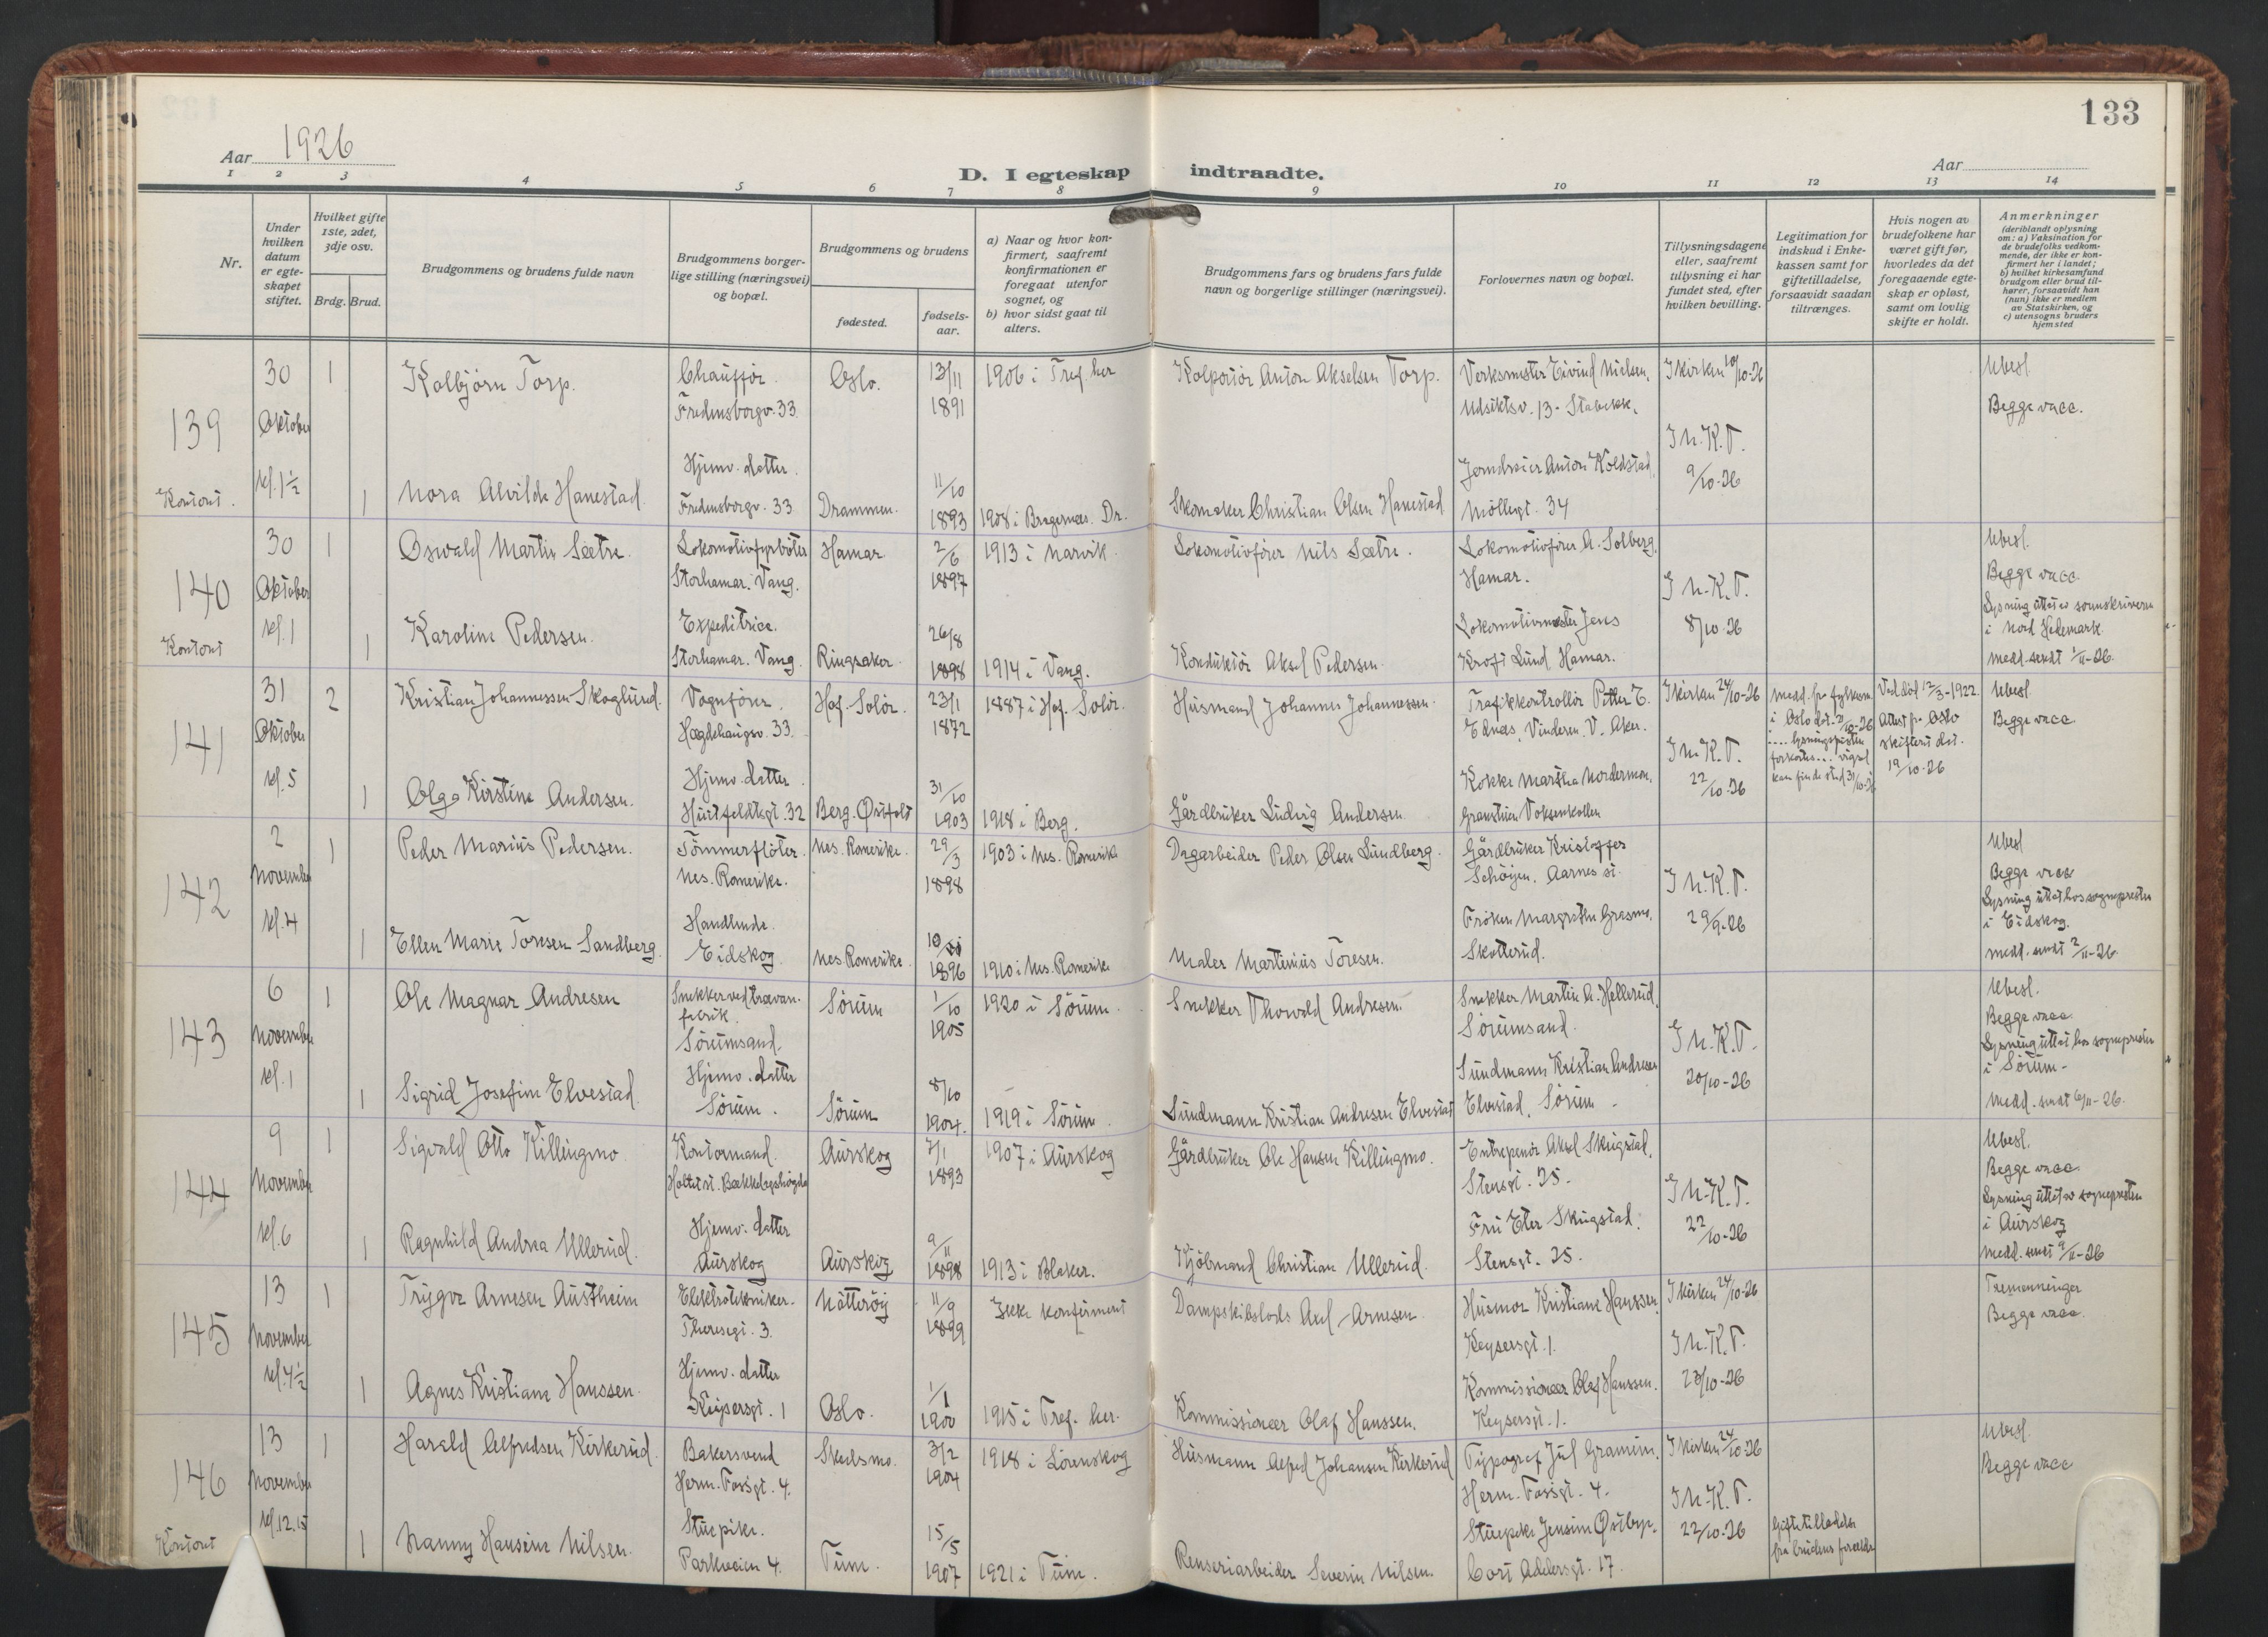 133
Aar 1926
D. I egteskap indtraadte.
Aar
1 2 3 4 5 6 7 8 9 10 11 12 13 14
Nr.
Under hvilken datum er egte-skapet stiftet.
Hvilket gifte 1ste, 2det, 3dje osv.
Brdg. Brud.
Brudgommens og brudens fulde navn
Brudgommens borger-lige stilling (næringsvei) og bopæl.
Brudgommens og brudens
fødested.
fødsels-aar.
a) Naar og hvor kon-firmert, saafremt konfirmationen er foregaat utenfor sognet, og
b) hvor sidst gaat til alters.
Brudgommens fars og brudens fars fulde navn og borgerlige stillinger (næringsvei).
Forlovernes navn og bopæl.
Tillysningsdagene eller, saafremt tillysning ei har fundet sted, efter hvilken bevilling.
Legitimation for indskud i Enke-kassen samt for giftetilladelse, forsaavidt saadan tiltrænges.
Hvis nogen av brudefolkene har været gift før, hvorledes da det foregaaende egte-skap er opløst, samt om lovlig skifte er holdt.
Anmerkninger (deriblandt oplysning om: a) Vaksination for de brudefolks vedkom-mende, der ikke er kon-firmert her i landet; b) hvilket kirkesamfund brudgom eller brud til-hører, forsaavidt han (hun) ikke er medlem av Statskirken, og c) utensogns bruders hjemsted
139
Kontoret.
30 Oktober kl. 1½
1
Kolbjörn Torp.
Chaufför. Fredensborgv. 33.
Oslo.
13/11 1891
1906 i Tref. her
Kolportör Anton Akselsen Torp.
Verksmester Eivind Nielsen, Udsiktsv. 13 - Stabekk.
I kirken 10/10-26
Ubesl. Begge vacc.
1
Nora Alvilde Hanestad.
Hjemv. datter. Fredensborgv. 33
Drammen.
11/10 1893
1908 i Bragernes. Dr.
Skomaker Christian Olsen Hanestad
Jerndreier Anton Koldstad, Möllergt. 34
I N.K.T. 9/10-26
140
Kontoret
30 Oktober kl. 1
1
Oswald Martin Sætre.
Lokomotivfyrböter Storhamar. Vang.
Hamar
2/6 1897
1913 i Narvik.
Lokomotivförer Nils Sætre.
Lokomotivförer A. Solberg, Hamar.
I N.K.T. 8/10-26
Ubesl.
Begge vacc.
Lysning uttat av sorenskriveren
i Nord Hedemark.
medd. sendt 1/11-26.
1
Karoline Pedersen.
Expeditrice. Storhamar. Vang.
Ringsaker.
26/8 1898
1914 i Vang.
Konduktör Aksel Pedersen.
Lokomotivmester Jens Kroft Lund Hamar.
141
31 Oktober kl. 5
2
Kristian Johannessen Skoglund.
Vognförer. Hægdehaugsv. 33.
Hof. Solör.
23/1 1872
1887 i Hof. Solör.
Husmand Johannes Johannessen.
Trafikkontrollör Petter E. Ednæs, Vinderen. V. Aker.
I kirken 24/10-26
I N.K.T. 22/10-26
medd. fra fylkesm. i Oslo dat. 21/10-26 .... lysningsfristen forkortes... vigsel kan finde sted 31/10-26
Ved död 12/3-1922. Attest fra Oslo skifterett dat. 19/10-26
Ubesl.
Begge vacc.
1
Olga Kirstine Andersen.
Hjemv. datter. Huitfeldtsgt. 32
Berg. Østfold
31/10 1903
1918 i Berg.
Gårdbruker Ludvig Andersen.
Kokke Martha Nordermoen, Granstuen Voksenkollen
142
2 November kl. 4
1
Peder Marius Pedersen.
Tömmerflöter. Nes. Romerike.
Nes. Romerike.
29/3 1898
1903 i Nes. Romerik
Dagarbeider Peder Olsen Lundberg.
Gårdbruker Kristoffer Schöyen. Aarnes st.
I N.K.T. 29/9-26
Ubesl
Begge vacc
Lysning uttat hos sognepresten
i Eidskog.
medd. sendt 2/11-26.
1
Ellen Marie Toresen Sandberg.
Handlende. Eidskog.
Nes Romerike.
1896
1910 i Nes. Romerike
Maler Martinius Toresen.
Fröken Margrethe Grasmo, Skotterud.
143
6 November kl. 1
1
Ole Magnar Andresen
Snekker ved trævarefabrik. Sörumsand.
Sörum
1/10 1905
1920 i Sörum.
Snekker Thorvald Andresen.
Snekker Martin A. Hellerud, Sörumsand.
I N.K.T. 20/10-26
Ubesl.
Begge vacc.
Lysning uttat hos sognepresten
i Sörum-
medd. sendt 6/11-26.
1
Sigrid Josefine Elvestad.
Hjemv. datter Sörum.
Sörum
8/10 1904.
1919 i Sörum.
Sundmann Kristian Andresen Elvestad
Sundmann Kristian Andresen Elvestad, Sörum -
144
9 November kl. 6
1
Sigvald Otto Killingmo
Kontormand. Holtet st. Bækkelagshögda
Aurskog
7/1 1893
1907 i Aurskog
Gårdbruker Ole Hansen Killingmo.
Entreprenör Aksel Skugstad, Stensgt. 25.
I N.K.T. 22/10-26
Ubesl.
Begge vacc.
Lysning uttat av sognepresten
i Aurskog
medd. sendt 9/11-26
1
Ragnhild Andrea Ullerud.
Hjemv. datter Aurskog
Aurskog
9/11 1898
1913 i Blaker.
Kjöbmand Christian Ullerud.
Fru Ester Skugstad. Stensgt. 25.
145
13 November kl. 4½
1
Trygve Arnesen Austheim
Elektrotekniker. Theresegt. 3.
Nötteröy
11/9 1899
Ikke konfirmert
Dampskibslods Axel Arnesen.
Husmor Kristiane Hanssen, Keysersgt. 1.
I kirken 24/10-26
I N.K.T. 23/10-26
Tremenninger
Begge vacc.
1
Agnes Kristiane Hanssen.
Hjemv. datter Keysersgt. 1
Oslo.
1/1 1900
1915 i Tref. her.
Kommissionær Olaf Hanssen.
Kommissionær Olaf Hanssen. Keysersgt. 1.
146
Kontoret
13 November kl. 12.15
1
Harald Alfredsen Kirkerud.
Bakersvend Herm. Fossgt. 4.
Skedsmo.
3/2 1904
1918 i Lörenskog
Husmann Alfred Johansen Kirkerud
Typograf Jul Gramim. Herm. Fossgt. 4.
I kirken 24/10-26
I N.K.T. 22/10-26
Ubesl.
Begge vacc
1
Nanny Hansine Nilsen.
Stuepike. Parkveien 4.
Tune.
15/5 1907
1921 i Tune.
Renseriarbeider Severin Nilsen.
Stuepike Jensine Østbye. Cort Adelersgt. 17.
Giftetilladelse fra brudens forældre